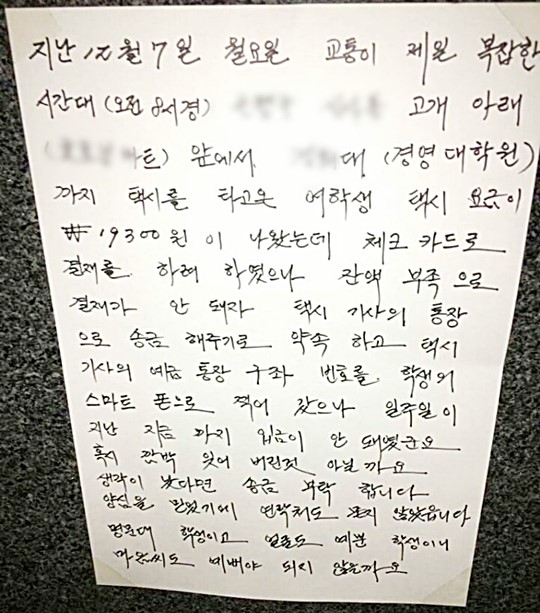 지난 12월 7일 월요일 교통이 제일 복잡한
시간대 (오전 8시경) 고개 아래
마트) 앞에서 대 (경영 대학원)
까지 택시를 타고온 여학생 택시 요금이
₩ 19300원 이 나왔는데 체크 카드로
결재를 하려 하였으나 잔액 부족 으로
결재가 안 돼자 택시 기사의 통장
으로 송금 해주기로 약속 하고 택시
기사의 예금 통장 구좌 번호를 학생의
스마트 폰으로 찍어 갔으나 일주일이
지난 지금 까지 입금이 안 돼였군요
혹시 깜박 잊어 버린것 아닐 까요
생각이 났다면 송금 부탁 합니다
양심을 믿었기에 연락처도 묻지 않았읍니다
명문대 학생이고 얼굴도 예쁜 학생이니
마음씨도 예뻐야 되지 않을까요